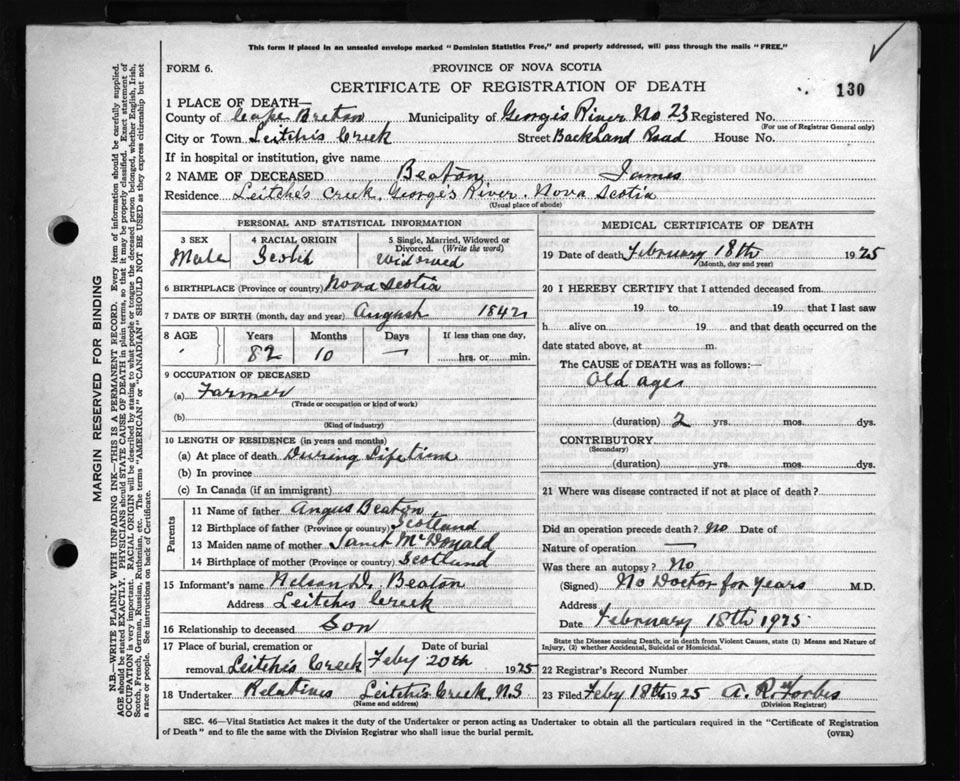 This form if placed in an unsealed envelope marked "Dominion Statistics Free," and properly addressed, will pass through the mails "FREE."
FORM 6.
PROVINCE OF NOVA SCOTIA
CERTIFICATE OF REGISTRATION OF DEATH
130
1 PLACE OF DEATH—
County of Cape Breton Municipality of Georges River No 23 Registered No.
(For use of Registrar General only)
City or Town Leitchs Creek Street Backland Road House No.
If in hospital or institution, give name
2 NAME OF DECEASED Beaton James
Residence Leitche's Creek, George's River. Nova Scotia
(Usual place of abode)
PERSONAL AND STATISTICAL INFORMATION
3 SEX
Male
4 RACIAL ORIGIN
Scotch
5 Single, Married, Widowed or Divorced. (Write the word)
Widowed
6 BIRTHPLACE (Province or country) Nova Scotia
7 DATE OF BIRTH (month, day and year) August 1842
8 AGE Years Months Days If less than one day,
82 10 — hrs. or min.
9 OCCUPATION OF DECEASED
(a) Farmer
(Trade or occupation or kind of work)
(b)
(Kind of industry)
10 LENGTH OF RESIDENCE (in years and months)
(a) At place of death During Lifetime
(b) In province
(c) In Canada (if an immigrant)
Parents
11 Name of father Angus Beaton
12 Birthplace of father (Province or country) Scotland
13 Maiden name of mother Janet McDonald
14 Birthplace of mother (Province or country) Scotland
15 Informant's name Nelson D. Beaton
Address Leitchs Creek
16 Relationship to deceased Son
17 Place of burial, cremation or Date of burial
removal Leitchs Creek Feby 20th 1925
18 Undertaker Relatives Leitchs Creek, N.S
(Name and address)
MEDICAL CERTIFICATE OF DEATH
19 Date of death February 18th 1925
(Month, day and year)
20 I HEREBY CERTIFY that I attended deceased from
19 to 19 that I last saw
h alive on 19 and that death occurred on
date stated above, at m.
The CAUSE of DEATH was as follows:—
Old age
(duration) 2 yrs. mos. dys.
CONTRIBUTORY
(Secondary)
(duration) yrs. mos. dys.
21 Where was disease contracted if not at place of death?
Did an operation precede death? No Date of
Nature of operation —
Was there an autopsy? No
(Signed) No Doctor for years M.D.
Address
Date February 18th 1925
State the Disease causing Death, or in death from Violent Causes, state (1) Means and Nature of
Injury, (2) whether Accidental, Suicidal or Homicidal.
22 Registrar's Record Number
23 Filed Feby 18th 1925 A. R. Forbes
(Division Registrar)
SEC. 46—Vital Statistics Act makes it the duty of the Undertaker or person acting as Undertaker to obtain all the particulars required in the "Certificate of Registration
of Death" and to file the same with the Division Registrar who shall issue the burial permit.
(OVER)
MARGIN RESERVED FOR BINDING
N.B.—WRITE PLAINLY WITH UNFADING INK—THIS IS A PERMANENT RECORD. Every item of information should be carefully supplied.
AGE should be stated EXACTLY. PHYSICIANS should STATE CAUSE OF DEATH in plain terms, so that it may be properly classified. Exact statement of
OCCUPATION is very important. RACIAL ORIGIN will be described by stating to what people or tongue the deceased person belonged, whether English, Irish,
Scotch, French, German, Russian, Ruthenian, etc. The terms "AMERICAN" or "CANADIAN" SHOULD NOT BE USED as they express citizenship but not
a race or people. See instructions on back of Certificate.